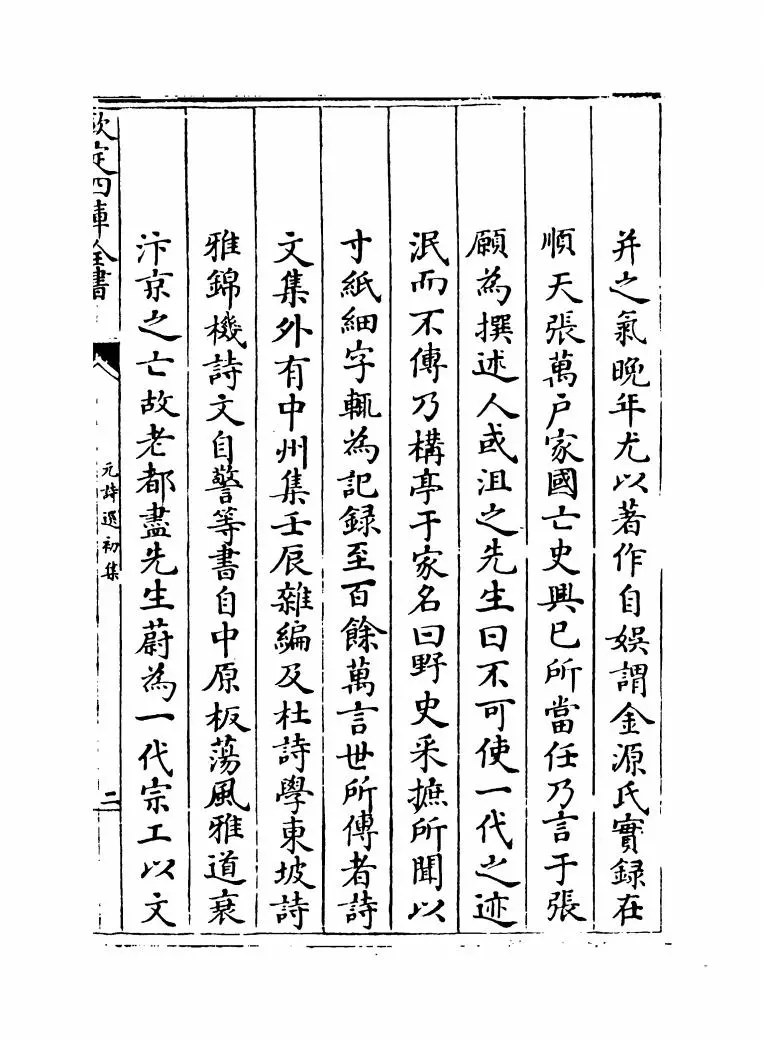 并之氣晚年尤以著作自娯謂金源氏實録在
順天張萬户家國亡史興已所當任乃言于張
願為撰述人或沮之先生曰不可使一代之迹
泯而不傳乃構亭于家名曰野史采摭所聞以
寸紙細字輒為記録至百餘萬言世所傳者詩
文集外有中州集壬辰雜編及杜詩學東坡詩
雅錦機詩文自警等書自中原板蕩風雅道衰
汴京之亡故老都盡先生蔚為一代宗工以文
欽定四庫全書
元詩選初集
二